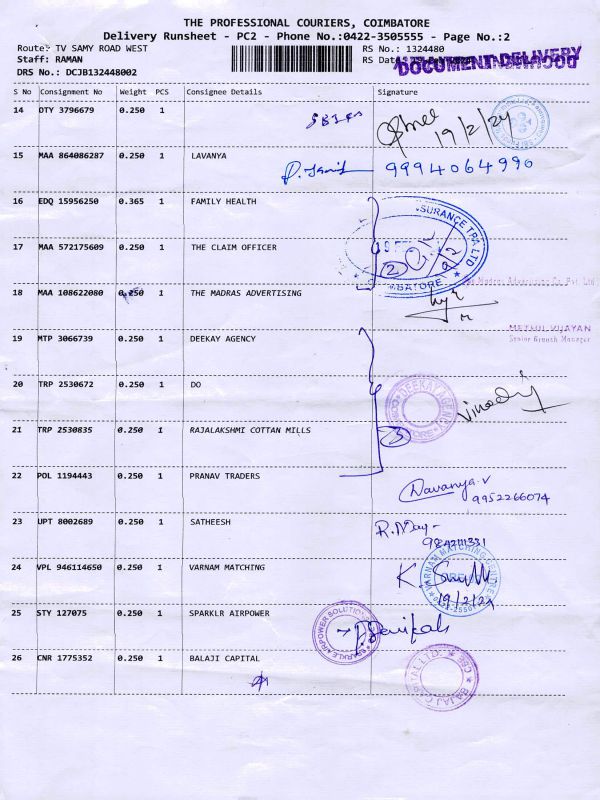 THE PROFESSIONAL COURIERS, COIMBATORE
Delivery Runsheet - PC2 - Phone No.:0422-3505555 - Page No.:2
Route: TV SAMY ROAD WEST RS No.: 1324480
Staff: RAMAN RS Dat
DRS No.: DCJB132448002
S No Consignment No Weight PCS Consignee Details Signature
14 DTY 3796679 0.250 1
19/2/24
15 MAA 864086287 0.250 1 LAVANYA
9994064990
16 EDQ 15956250 0.365 1 FAMILY HEALTH
SURANCE TPA LTD
17 MAA 572175609 0.250 1 THE CLAIM OFFICER
2
MBATORE
18 MAA 108622080 0.250 1 THE MADRAS ADVERTISING
Madras Advertising Co Pvt Ltd
19 MTP 3066739 0.250 1 DEEKAY AGENCY
VIJAYAN
Senior Growth Manager
20 TRP 2530672 0.250 1 DO
DEEKAY AGENCY
21 TRP 2530835 0.250 1 RAJALAKSHMI COTTAN MILLS
3
22 POL 1194443 0.250 1 PRANAV TRADERS
Davanya.V
9952266074
23 UPT 8002689 0.250 1 SATHEESH
24 VPL 946114650 0.250 1 VARNAM MATCHING
VARNAM MATCHING CENTRE
19/2/24
25 STY 127075 0.250 1 SPARKLR AIRPOWER
SPARKLE AIRPOWER SOLUTION
26 CNR 1775352 0.250 1 BALAJI CAPITAL
BAJAJ CAPITAL LTD. CBE